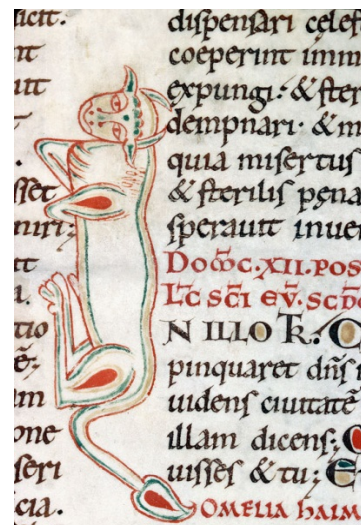 licit:
nt
sset
niri:
tio
am
one
seri
cia.
dispensari celes
coeperint imm
expungi: & ster
dempnari· & m
quia misertus
& sterilis pęna
sperauit inue
XII. POS
LC̄ SC̄I EV̄. SCD
N ILLO
pinquaret dn̄s i
uidens ciuitatē
illam dicens;
uisses & tu;
OMELIA HAIM